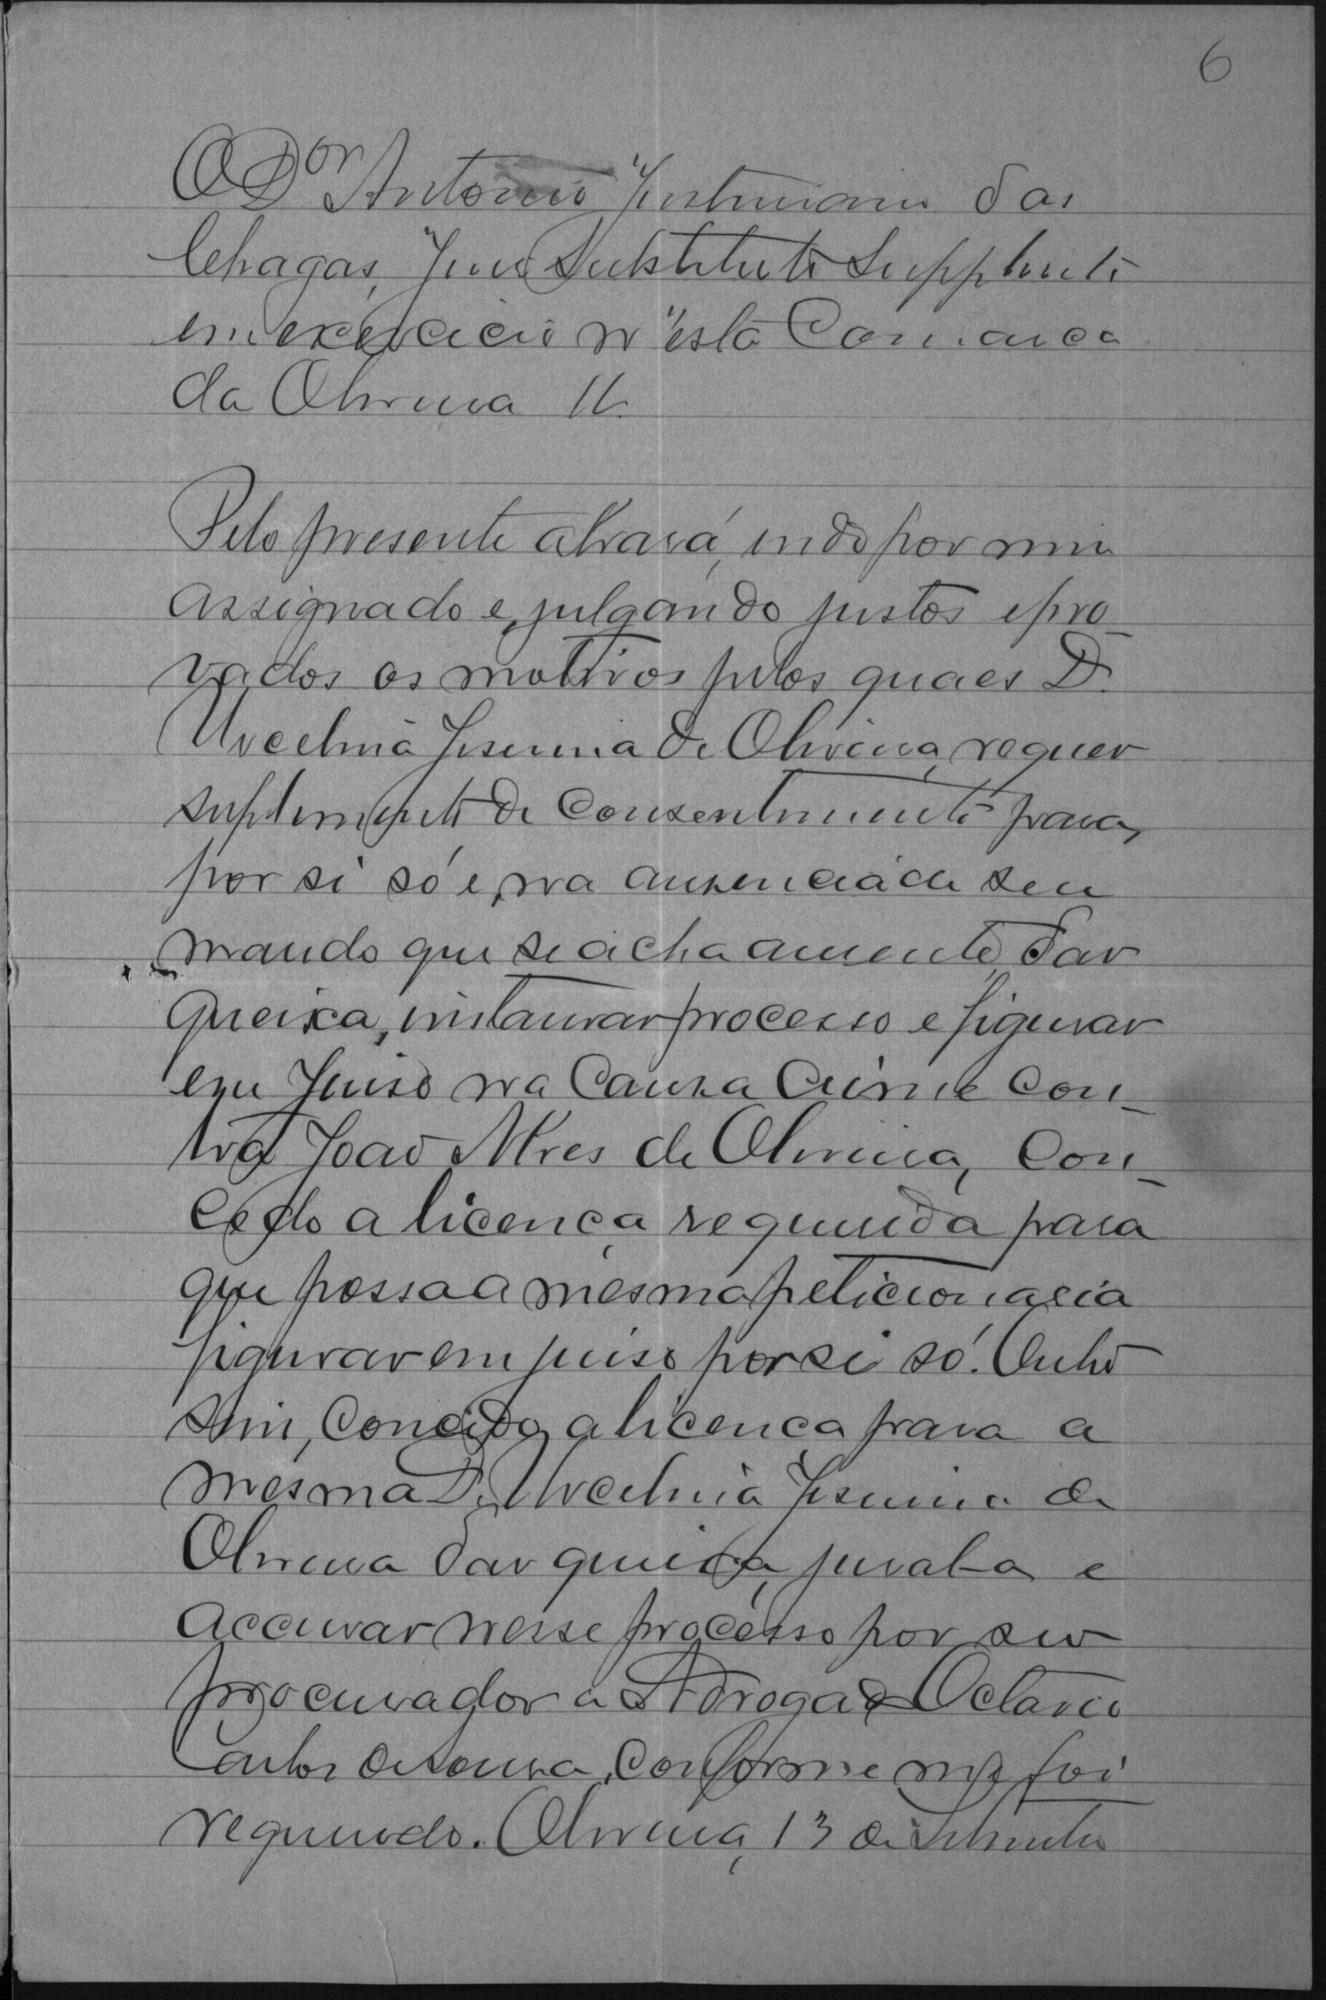 6
O Dor Antonio Justiniano das
Chagas, Juiz Substituto Supplente
em exercicio n'esta Comarca
da Oliveira
Pelo presente alvará, indo por mim
assignado e, julgando justos e pro-
vados os motivos pelos quaes D.
Jesuina de Oliveira, requer
suplemento de consentimento para,
por si só e, na ausencia de seu
marido que se acha ausente, dar
queixa, instaurar processo e figurar
em Juiso na Causa Crime con-
tra João Alves de Oliveira, con-
cedo a licença requerida para
que possa a mesma peticionaria
figurar em juiso por si só. Outro
sim, concedo a licença para a
mesma D. Jesuina de
Oliveira dar queixa, jural-a e
accusar nesse processo por seu
procurador o Advogado Octavio
Carlos de Souza, conforme me foi
requerido. Oliveira, 13 de Setembro